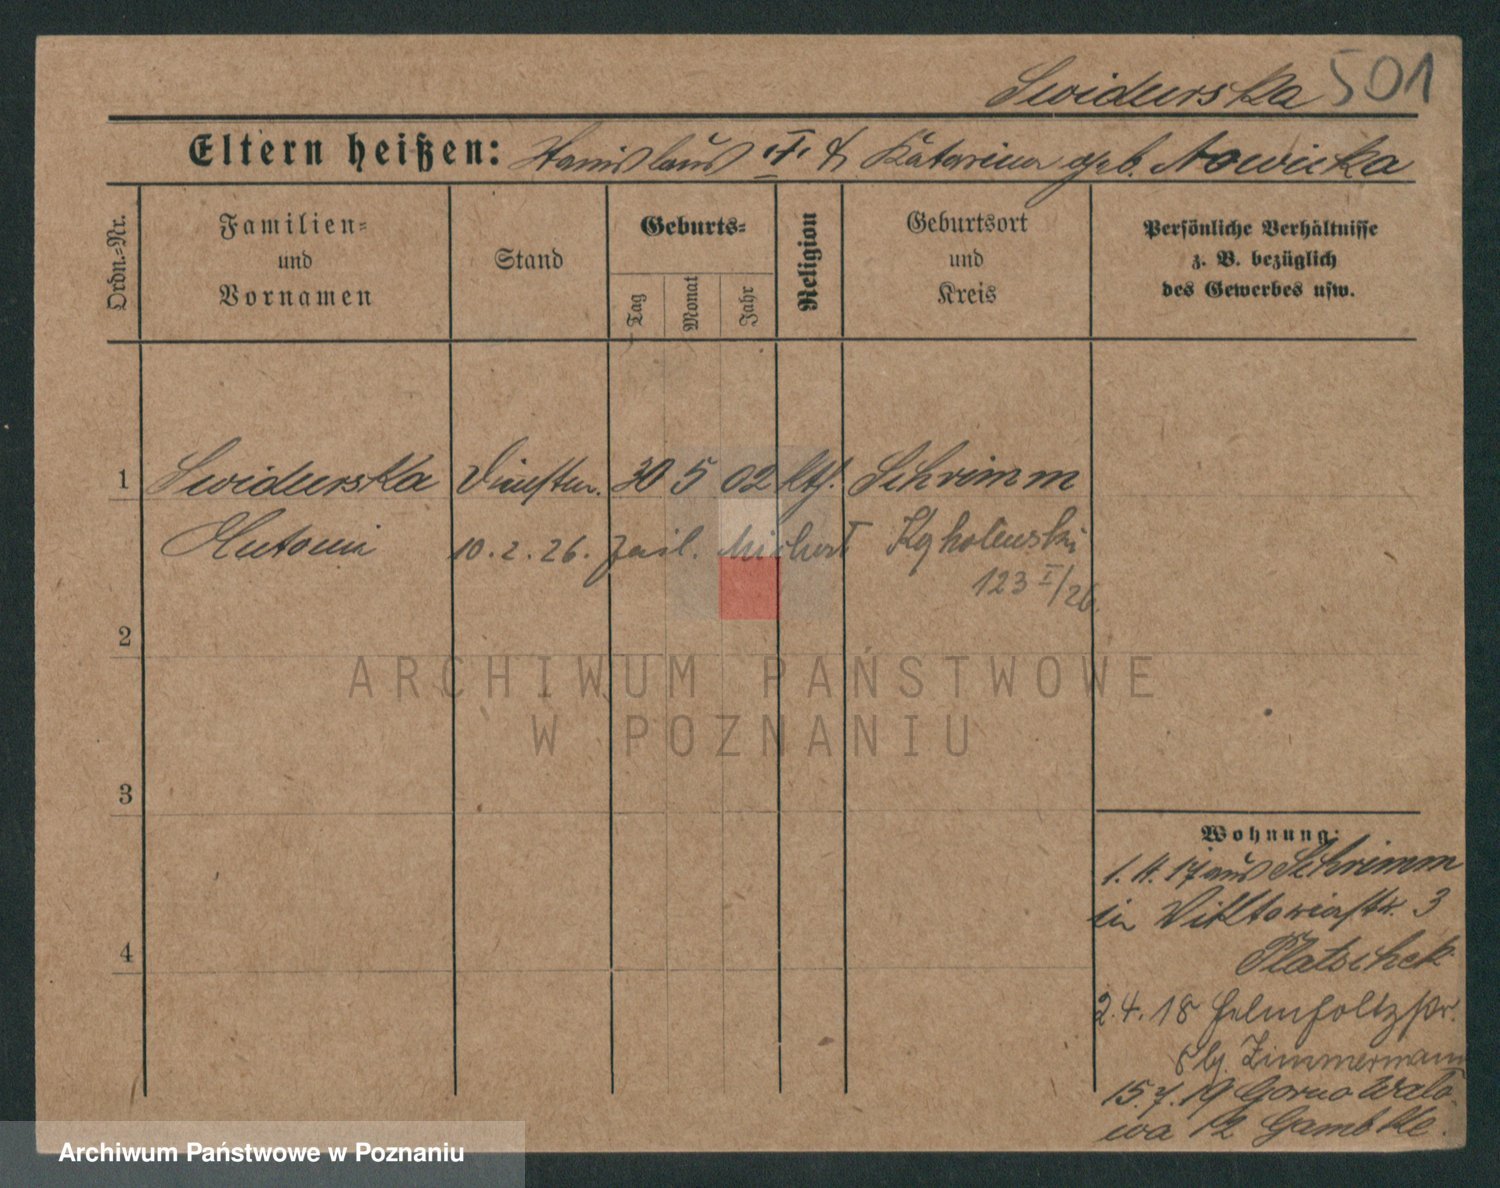 Swiderska 501
Eltern heißen: Stanislaus I & Katarina geb. Nowicka
Ordn.-Nr.
Familien-
und
Vornamen
Stand
Geburts-
Tag
Monat
Jahr
Religion
Geburtsort
und
Kreis
Persönliche Verhältnisse
z. B. bezüglich
des Gewerbes usw.
1 Swiderska 30 5 02 kth. Schrimm
Antonie 10.2.26.
123 I/26.
2
3
4
Wohnung:
17 aus Schrimm
in Viktoriastr. 3
Platschek
2.4.18 Helmholtzstr.
Zimmermann
15.7.19 Gorno Walo-
wa 12
ARCHIWUM PAŃSTWOWE
W POZNANIU
Archiwum Państwowe w Poznaniu